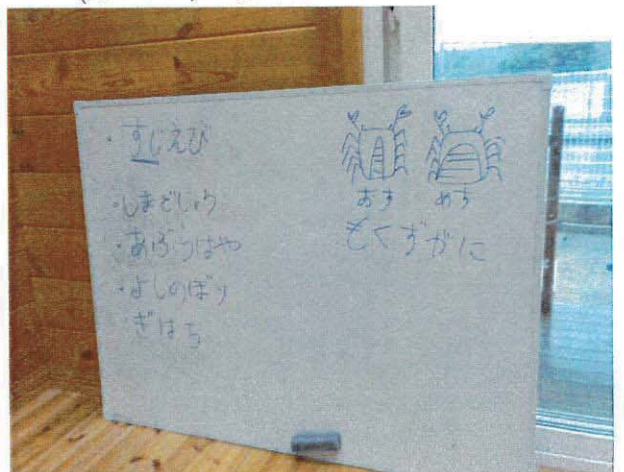 ・すじえび
・しまどじょう
・あぶらはや
・よしのぼり
・ぎばち
おす めす
もくずがに